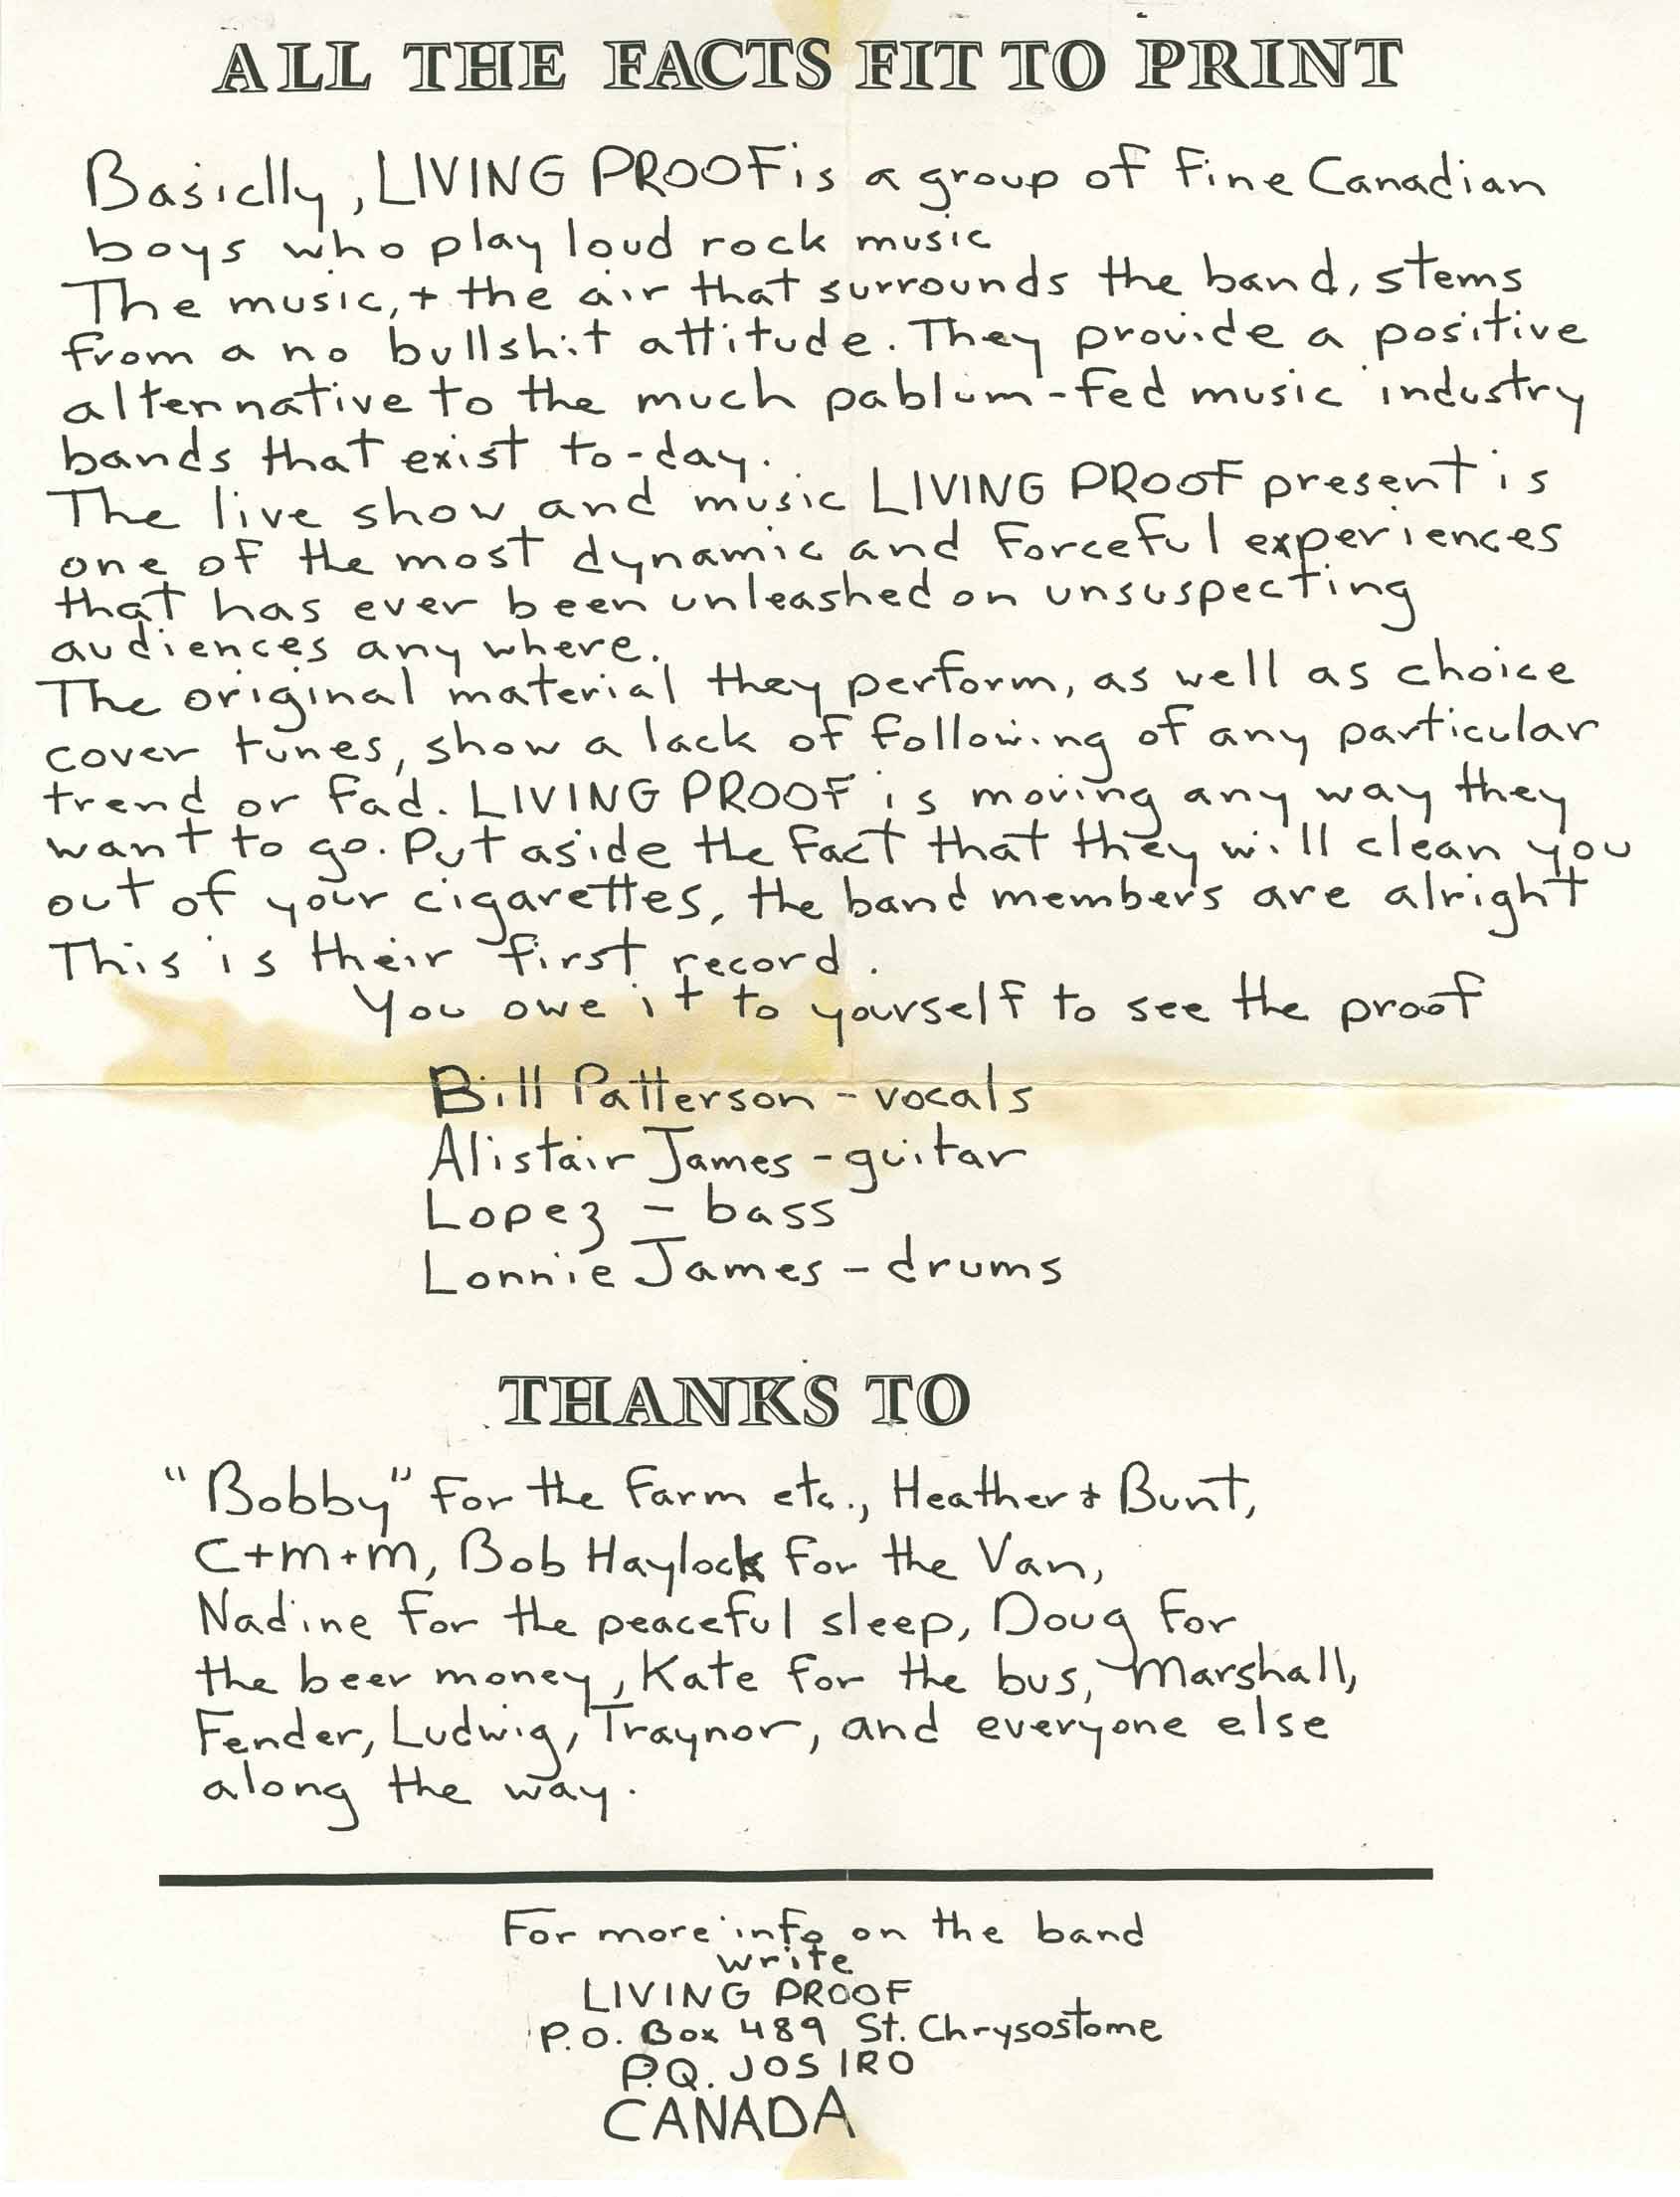 ALL THE FACTS FIT TO PRINT
Basiclly, LIVING PROOF is a group of fine Canadian
boys who play loud rock music
The music, + the air that surrounds the band, stems
from a no bullshit attitude. They provide a positive
alternative to the much pablum-fed music industry
bands that exist to-day.
The live show and music LIVING PROOF present is
one of the most dynamic and forceful experiences
that has ever been unleashed on unsuspecting
audiences anywhere.
The original material they perform, as well as choice
cover tunes, show a lack of following of any particular
trend or fad. LIVING PROOF is moving any way they
want to go. Put aside the fact that they will clean you
out of your cigarettes, the band members are alright
This is their first record.
You owe it to yourself to see the proof
Bill Patterson - vocals
Alistair James - guitar
Lopez - bass
Lonnie James - drums
THANKS TO
"Bobby" for the farm etc., Heather + Bunt,
C+m+m, Bob Haylock for the Van,
Nadine for the peaceful sleep, Doug for
the beer money, Kate for the bus, Marshall,
Fender, Ludwig, Traynor, and everyone else
along the way.
For more info on the band
write
LIVING PROOF
P.O. Box 489 St. Chrysostome
P.Q. JOS 1RO
CANADA